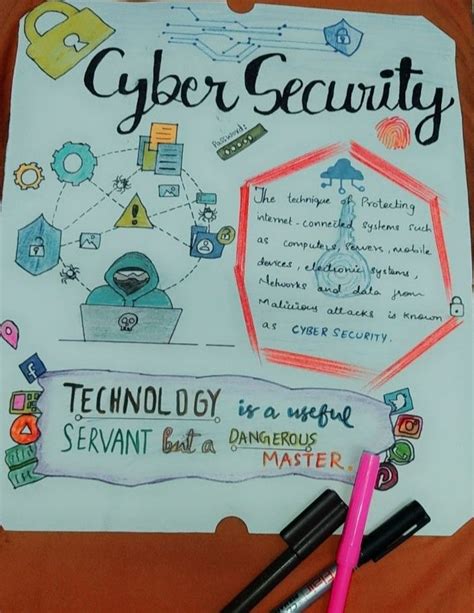 Cyber Security
Password:
The technique of Protecting
internet-connected systems such
as computers, servers, mobile
devices, electronic systems,
Networks and data from
Malicious attacks is known
as CYBER SECURITY.
TECHNOLOGY is a useful
SERVANT but a DANGEROUS
MASTER.